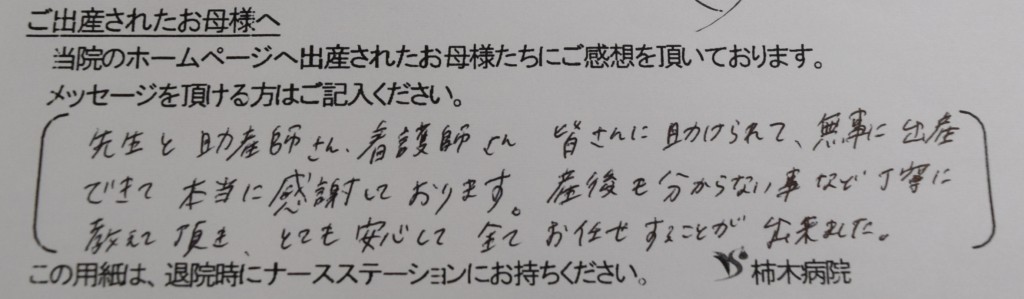 ご出産されたお母様へ
当院のホームページへ出産されたお母様たちにご感想を頂いております。
メッセージを頂ける方はご記入ください。
先生と助産師さん、看護師さん 皆さんに助けられて、無事に出産
できて本当に感謝しております。産後も分からない事など丁寧に
教えて頂き、とても安心して全てお任せすることが出来ました。
この用紙は、退院時にナースステーションにお持ちください。 柿木病院